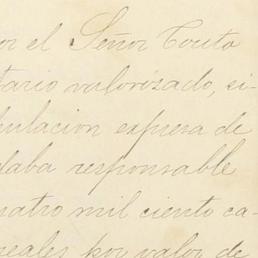 or el Señor Couto
tario valorizado, si-
pulacion expresa de
daba responsable
uatro mil ciento ca-
reales por valor de